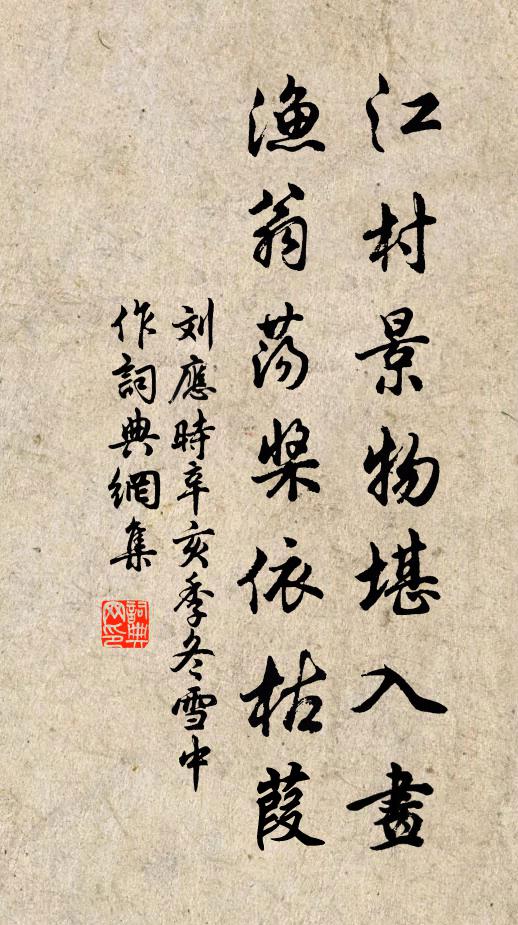 江村景物堪入畫
漁翁蕩槳依枯葭
刘應時辛亥季冬雪中
作詞典網集
詞典网印